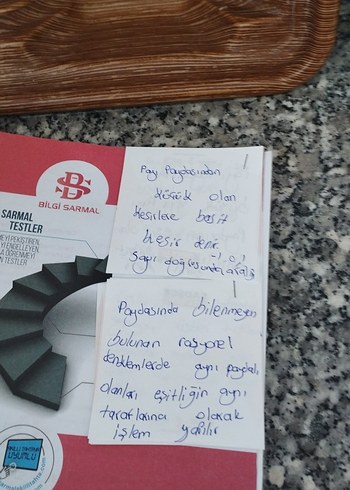 BİLGİ SARMAL
SARMAL
TESTLER
Payı Paydasından
küçük olan
kesirlere basit
kesir denir
Sayı doğrusunda -1, 0, 1
Paydasında bilenmeyen
bulunan rasyonel
denklemlerde aynı paydalı
olanları eşitliğin aynı
taraflarına alarak
işlem yapılır
UYUMLU